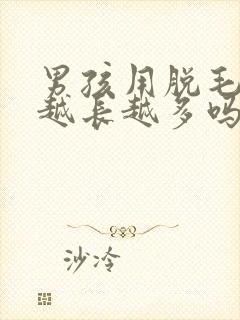 男孩用脱毛
越长越多吗
沙冷